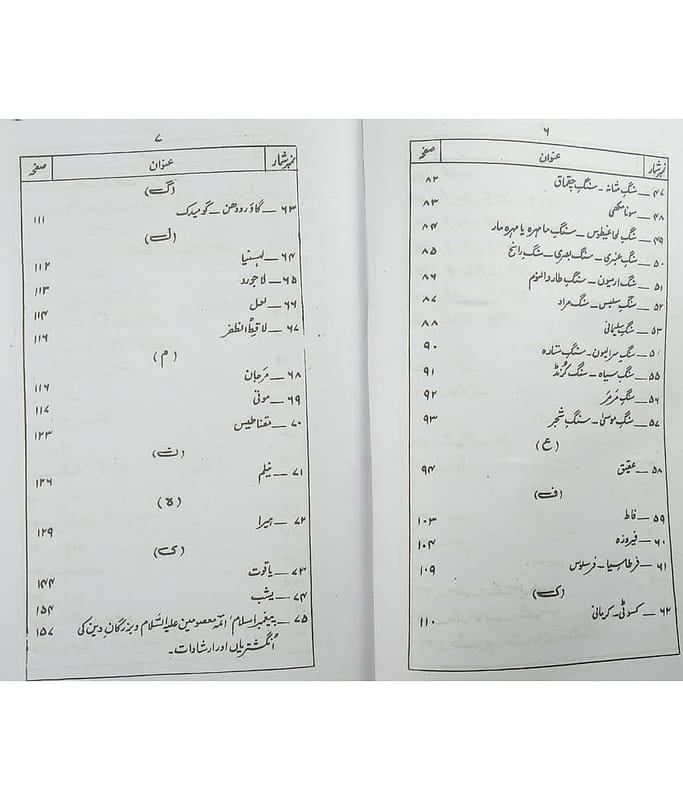 ۶
نمبر شمار عنوان صفحہ
۴۷ — سنگِ شانہ - سنگِ چقماق ۸۲
۴۸ — سونا مکھی ۸۳
۴۹ — سنگ لحاغیطوس - سنگِ ماہرہ یا مہرہ مار ۸۴
۵۰ — سنگِ عنبری - سنگ بصری - سنگِ راسخ ۸۵
۵۱ — سنگ ارمیون - سنگ طارد النوم ۸۶
۵۲ — سنگِ سلیس - سنگ مراد ۸۷
۵۳ — سنگِ سلیمانی ۸۸
۵۴ — سنگِ سرالیون - سنگِ ستارہ ۹۰
۵۵ — سنگ سیاہ - سنگ کُرنڈ ۹۱
۵۶ — سنگِ مَرمَر ۹۲
۵۷ — سنگِ موسٰی - سنگِ شجر ۹۳
(ع)
۵۸ — عقیق ۹۴
(ف)
۵۹ — فاط ۱۰۳
۶۰ — فیروزہ ۱۰۴
۶۱ — فرطاسیا - فرسلوس ۱۰۹
(ک)
۶۲ — کسوٹی - کرمانی ۱۱۰
۷
نمبر شمار عنوان صفحہ
(گ)
۶۳ — گاؤ رودھن - گومیدک ۱۱۱
(ل)
۶۴ — لہسنیا ۱۱۲
۶۵ — لاجورد ۱۱۳
۶۶ — لعل ۱۱۴
۶۷ — لاقِطُ الظفر ۱۱۶
(م)
۶۸ — مَرجان ۱۱۶
۶۹ — موتی ۱۱۷
۷۰ — مقناطیس ۱۲۳
(ن)
۷۱ — نیلم ۱۲۶
(ہ)
۷۲ — ہیرا ۱۲۹
(ی)
۷۳ — یاقوت ۱۴۴
۷۴ — یشب ۱۵۴
۷۵ — پیغمبرِ اسلام، ائمہ معصومین علیہ السّلام و بزرگانِ دین کی ۱۵۷
اُنگشتریاں اور ارشادات۔